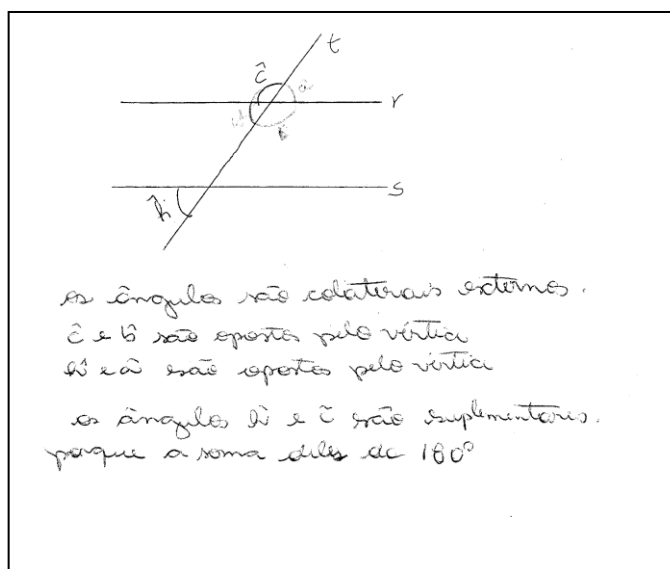 t
ĉ
a
r
d
b
s
ĥ
os ângulos são colaterais externos.
ĉ e b̂ são opostos pelo vértice
ĥ e â são opostos pelo vértice
os ângulos ĥ e ĉ são suplementares.
porque a soma deles dc 180°